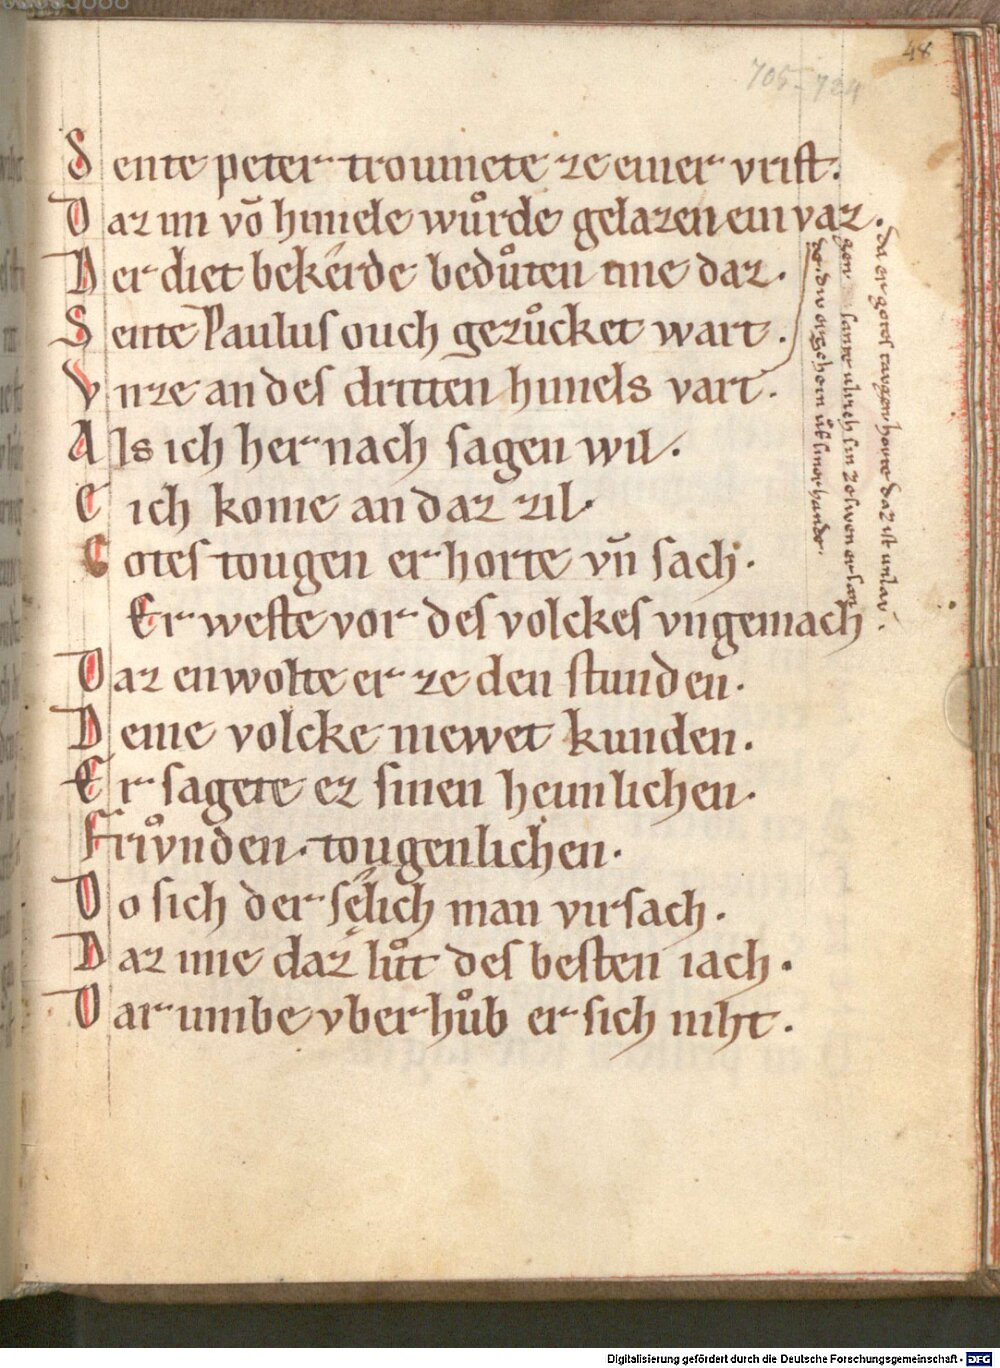 48
705-724
Sente peter troumete ze einer vrist.
Daz im võ himele wuͦrde gelazen ein vaz.
Der diet bekérde beduͦten ime daz.
Sente Paulus ouch gezuͦcket wart.
Vnze an des dritten himels vart.
Als ich her nach sagen wil.
E ich kome an daz zil.
Gotes tougen er horte vñ sach.
Er weste vor des volckes vngemach
Daz enwolte er ze den stunden.
Deme volcke niewet kunden.
Er sagete ez sinen heimlichen.
Friuͦnden. tougenlichen.
Do sich der sęlich man virsach.
Daz ime daz luͦt des besten iach.
Dar umbe vber huͦb er sich niht.
da er gotes taugen horte daz ist
gen
sin
er
siner hande.
Digitalisierung gefördert durch die Deutsche Forschungsgemeinschaft - DFG